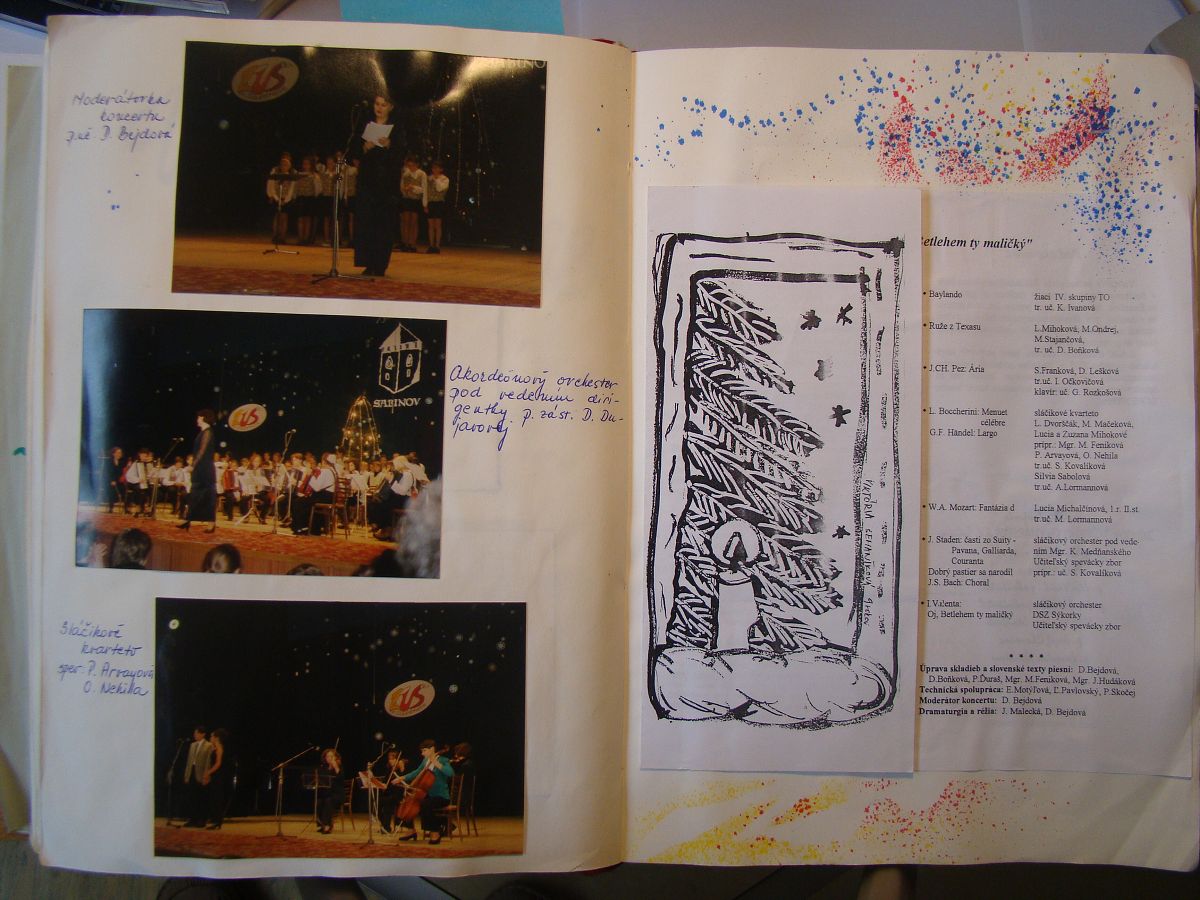 Moderátorka
koncertu
D. Bejdová
Akordeónový orchester
pod vedením diri-
gentky p. zást. D. Du-
javovej
SABINOV
Sláčikové
kvarteto
P. Arvayová
O. Nehila
VIKTÓRIA
etlehem ty maličký"
• Baylando žiaci IV. skupiny TO
tr. uč. K. Ivanová
• Ruže z Texasu L.Mihoková, M.Ondrej,
M.Stajančová,
tr. uč. D. Boňková
• J.CH. Pez: Ária S.Franková, D. Lešková
tr.uč. I. Očkovičová
klavír: uč. G. Rozkošová
• L. Boccherini: Menuet sláčikové kvarteto
célébre L. Dvorščák, M. Mačeková,
G.F. Händel: Largo Lucia a Zuzana Mihokové
pripr.: Mgr. M. Feníková
P. Arvayová, O. Nehila
tr.uč. S. Kovalíková
Silvia Sabolová
tr. uč. A.Lormannová
• W.A. Mozart: Fantázia d Lucia Michalčínová, 1.r. II.st.
tr.uč. M. Lormannová
• J. Staden: časti zo Suity - sláčikový orchester pod vede-
Pavana, Galliarda, ním Mgr. K. Medňanského
Couranta Učiteľský spevácky zbor
Dobrý pastier sa narodil pripr.: uč. S. Kovalíková
J.S. Bach: Choral
• I.Valenta: sláčikový orchester
Oj, Betlehem ty maličký DSZ Sýkorky
Učiteľský spevácky zbor
* * * *
Úprava skladieb a slovenské texty piesní: D.Bejdová,
D.Boňková, P.Ďuraš, Mgr. M.Feníková, Mgr. J.Hudáková
Technická spolupráca: E.Motýľová, Ľ.Pavlovský, P.Skočej
Moderátor koncertu: D. Bejdová
Dramaturgia a réžia: J. Malecká, D. Bejdová